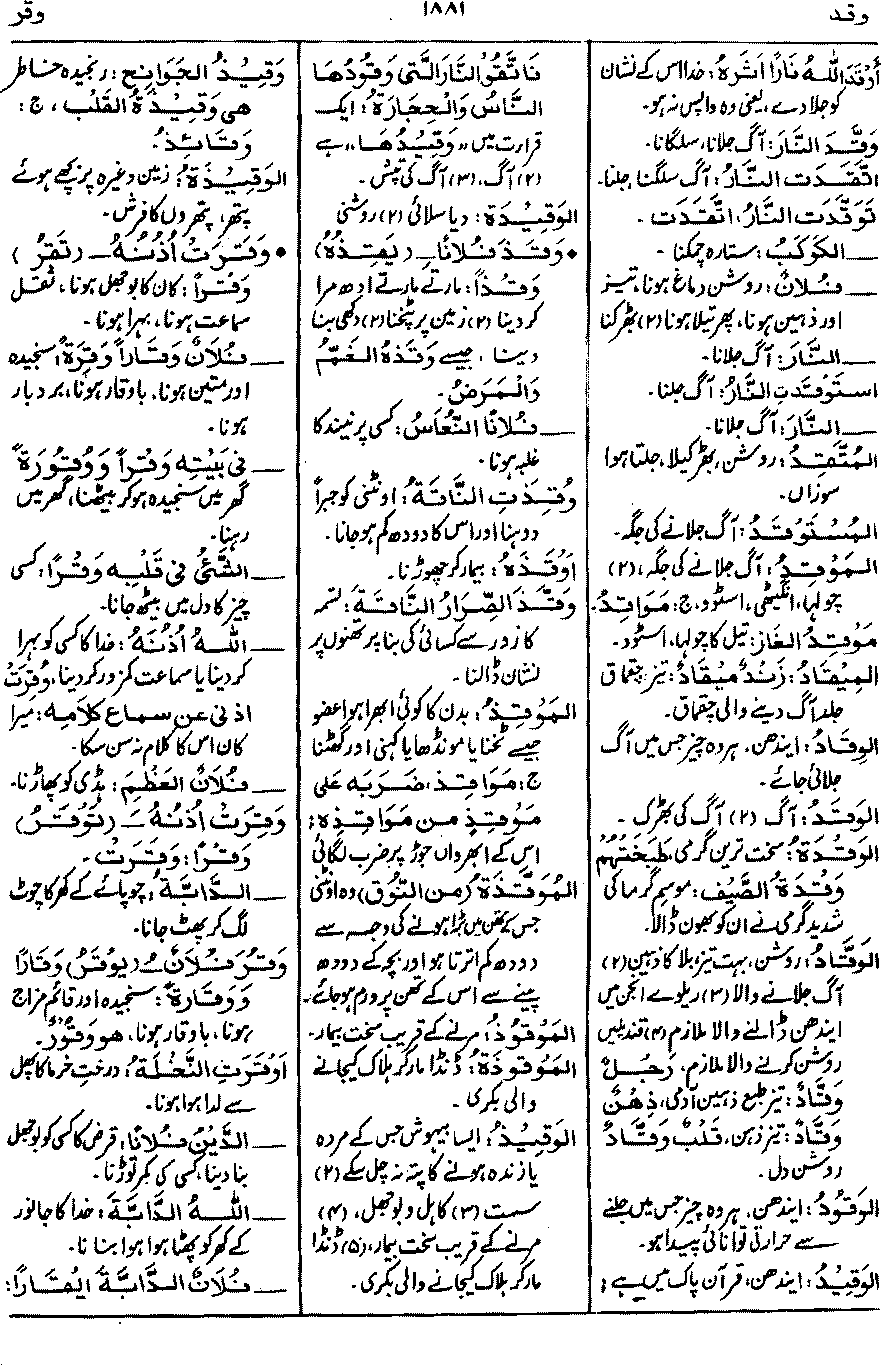 وقد
۱۸۸۱
وقر
أَوْقَدَ اللهُ نَارًا اَثَرَهُ: خدا اس کے نشان
کو جلا دے، یعنی وہ واپس نہ ہو۔
وَقَّدَ النَّارَ: آگ جلانا، سلگانا۔
اتَّقَدَتِ النَّارُ: آگ سلگنا، جلنا۔
تَوَقَّدَتِ النَّارُ، اتَّقَدَتْ ۔
— الكَوْكَبُ: ستارہ چمکنا ۔
— فُلَانٌ: روشن دماغ ہونا، تیز
اور ذہین ہونا، پھرتیلا ہونا (۲) بھڑکنا
— النَّارَ: آگ جلانا۔
اسْتَوْقَدَتِ النَّارُ: آگ جلنا۔
— النَّارَ: آگ جلانا۔
المُتَّقِدُ: روشن، بھڑکیلا، جلتا ہوا
سوزاں۔
المُسْتَوْقَدُ: آگ جلانے کی جگہ۔
المَوْقِدُ: آگ جلانے کی جگہ، (۲)
چولہا، انگیٹھی، اسٹوو، ج: مَوَاقِدُ۔
مَوْقِدُ الغَازِ: تیل کا چولہا، اسٹوو۔
المِيْقَادُ: زَنْدٌ مِيْقَادٌ: تیز چقماق
جلد آگ دینے والی چقماق۔
الوِقَادُ: ایندھن، ہر وہ چیز جس میں آگ
جلائی جائے۔
الوَقَدُ: آگ (۲) آگ کی بھڑک ۔
الوَقْدَةُ: سخت ترین گرمی، طَبَخَتْهُمْ
وَقْدَةُ الصَّيْفِ: موسم گرما کی
شدید گرمی نے ان کو بھون ڈالا۔
الوَقَّادُ: روشن، بہت تیز، بلا کا ذہین (۲)
آگ جلانے والا (۳) ریلوے انجن میں
ایندھن ڈالنے والا ملازم (۴) قندیلیں
روشن کرنے والا ملازم، رَجُلٌ
وَقَّادٌ: تیز طبع ذہین آدمی، ذِهْنٌ
وَقَّادٌ: تیز ذہن، قَلْبٌ وَقَّادٌ
روشن دل۔
الوَقُوْدُ: ایندھن، ہر وہ چیز جس میں جلنے
سے حرارتی توانائی پیدا ہو۔
الوَقِيْدُ: ایندھن، قرآن پاک میں ہے:
فَاتَّقُوا النَّارَ الَّتِي وَقُوْدُهَا
النَّاسُ وَالْحِجَارَةُ: ایک
قراءت میں «وَقِيْدُهَا» ہے
(۲) آگ، (۳) آگ کی تپش۔
الوَقِيْدَةُ: دیا سلائی (۲) روشنی
• وَقَذَ فُلَانًا — (يَقِذُهُ)
وَقْذًا: مارتے مارتے ادھ مرا
کر دینا (۲) زمین پر پٹخنا (۲) دکھی بنا
دینا، جیسے وَقَذَهُ الغَمُّ
وَالْمَرَضُ۔
— فُلَانًا النُّعَاسُ: کسی پر نیند کا
غلبہ ہونا۔
وُقِذَتِ النَّاقَةُ: اونٹنی کو جبراً
دوہنا اور اس کا دودھ کم ہو جانا۔
أَوْقَذَهُ: بیمار کر چھوڑنا۔
وَقَّذَ الصِّرَارُ النَّاقَةَ: تسمہ
کا زور سے کسائی کی بنا پر تھنوں پر
نشان ڈالنا۔
المَوْقِذُ: بدن کا کوئی ابھرا ہوا عضو
جیسے ٹخنا یا مونڈھا یا کہنی اور گھٹنا
ج: مَوَاقِذ، ضَرَبَهُ عَلٰى
مَوْقِذٍ مِنْ مَوَاقِذِهِ:
اس کے ابھرواں جوڑ پر ضرب لگائی
المُوَقَّذَةُ (مِنَ النُّوْقِ) وہ اونٹنی
جس کے تھن میں بڑا ہونے کی وجہ سے
دودھ کم اترتا ہو اور بچہ کے دودھ
پینے سے اس کے تھن پر ورم ہو جائے۔
المَوْقُوْذُ: مرنے کے قریب سخت بیمار۔
المَوْقُوْذَةُ: ڈنڈا مار کر ہلاک کیجانے
والی بکری ۔
الوَقِيْذُ: ایسا بیہوش جس کے مردہ
یا زندہ ہونے کا پتہ نہ چل سکے (۲)
سست (۳) کاہل و بوجھل، (۴)
مرنے کے قریب سخت بیمار، (۵) ڈنڈا
مار کر ہلاک کیجانے والی بکری۔
وَقِيْذُ الجَوَانِحِ: رنجیدہ خاطر
هِيَ وَقِيْذَةُ القَلْبِ، ج:
وَقَائِذُ۔
الوَقِيْذَةُ: زمین وغیرہ پر بچھے ہوئے
پتھر، پتھروں کا فرش۔
• وَقَرَتْ أُذُنُهُ — (تَقِرُ)
وَقْرًا: کان کا بوجھل ہونا، ثقل
سماعت ہونا، بہرا ہونا ۔
— فُلَانٌ وَقَارًا وَقِرَةً: سنجیدہ
اور متین ہونا، باوقار ہونا، بردبار
ہونا۔
— فِي بَيْتِهِ وَقْرًا وَوُقُوْرَةً
گھر میں سنجیدہ ہو کر بیٹھنا، گھر میں
رہنا۔
— الشَّيْءُ فِي قَلْبِهِ وَقْرًا: کسی
چیز کا دل میں بیٹھ جانا۔
— اللهُ أُذُنَهُ: خدا کا کسی کو بہرا
کر دینا یا سماعت کمزور کر دینا، وُقِرَتْ
اُذْنِي عَنْ سَمَاعِ كَلَامِهِ: میرا
کان اس کا کلام نہ سن سکا۔
— فُلَانٌ العَظْمَ: ہڈی کو پھاڑنا۔
وَقِرَتْ أُذُنُهُ — (تَوْقَرُ)
وَقْرًا: وَقَرَتْ ۔
— الدَّابَّةُ: چوپائے کے کھر کا چوٹ
لگ کر پھٹ جانا۔
وَقُرَ فُلَانٌ — (يَوْقُرُ) وَقَارًا
وَوَقَارَةً: سنجیدہ اور قائم مزاج
ہونا، باوقار ہونا، هُوَ وَقُوْرٌ۔
أَوْقَرَتِ النَّخْلَةُ: درخت خرما کا پھل
سے لدا ہوا ہونا۔
— الدَّيْنُ فُلَانًا: قرض کا کسی کو بوجھل
بنا دینا، کسی کی کمر توڑنا۔
— اللهُ الدَّابَّةَ: خدا کا جانور
کے کھر کو پھٹا ہوا ہوا بنانا۔
— فُلَانٌ الدَّابَّةَ إِيْقَارًا: